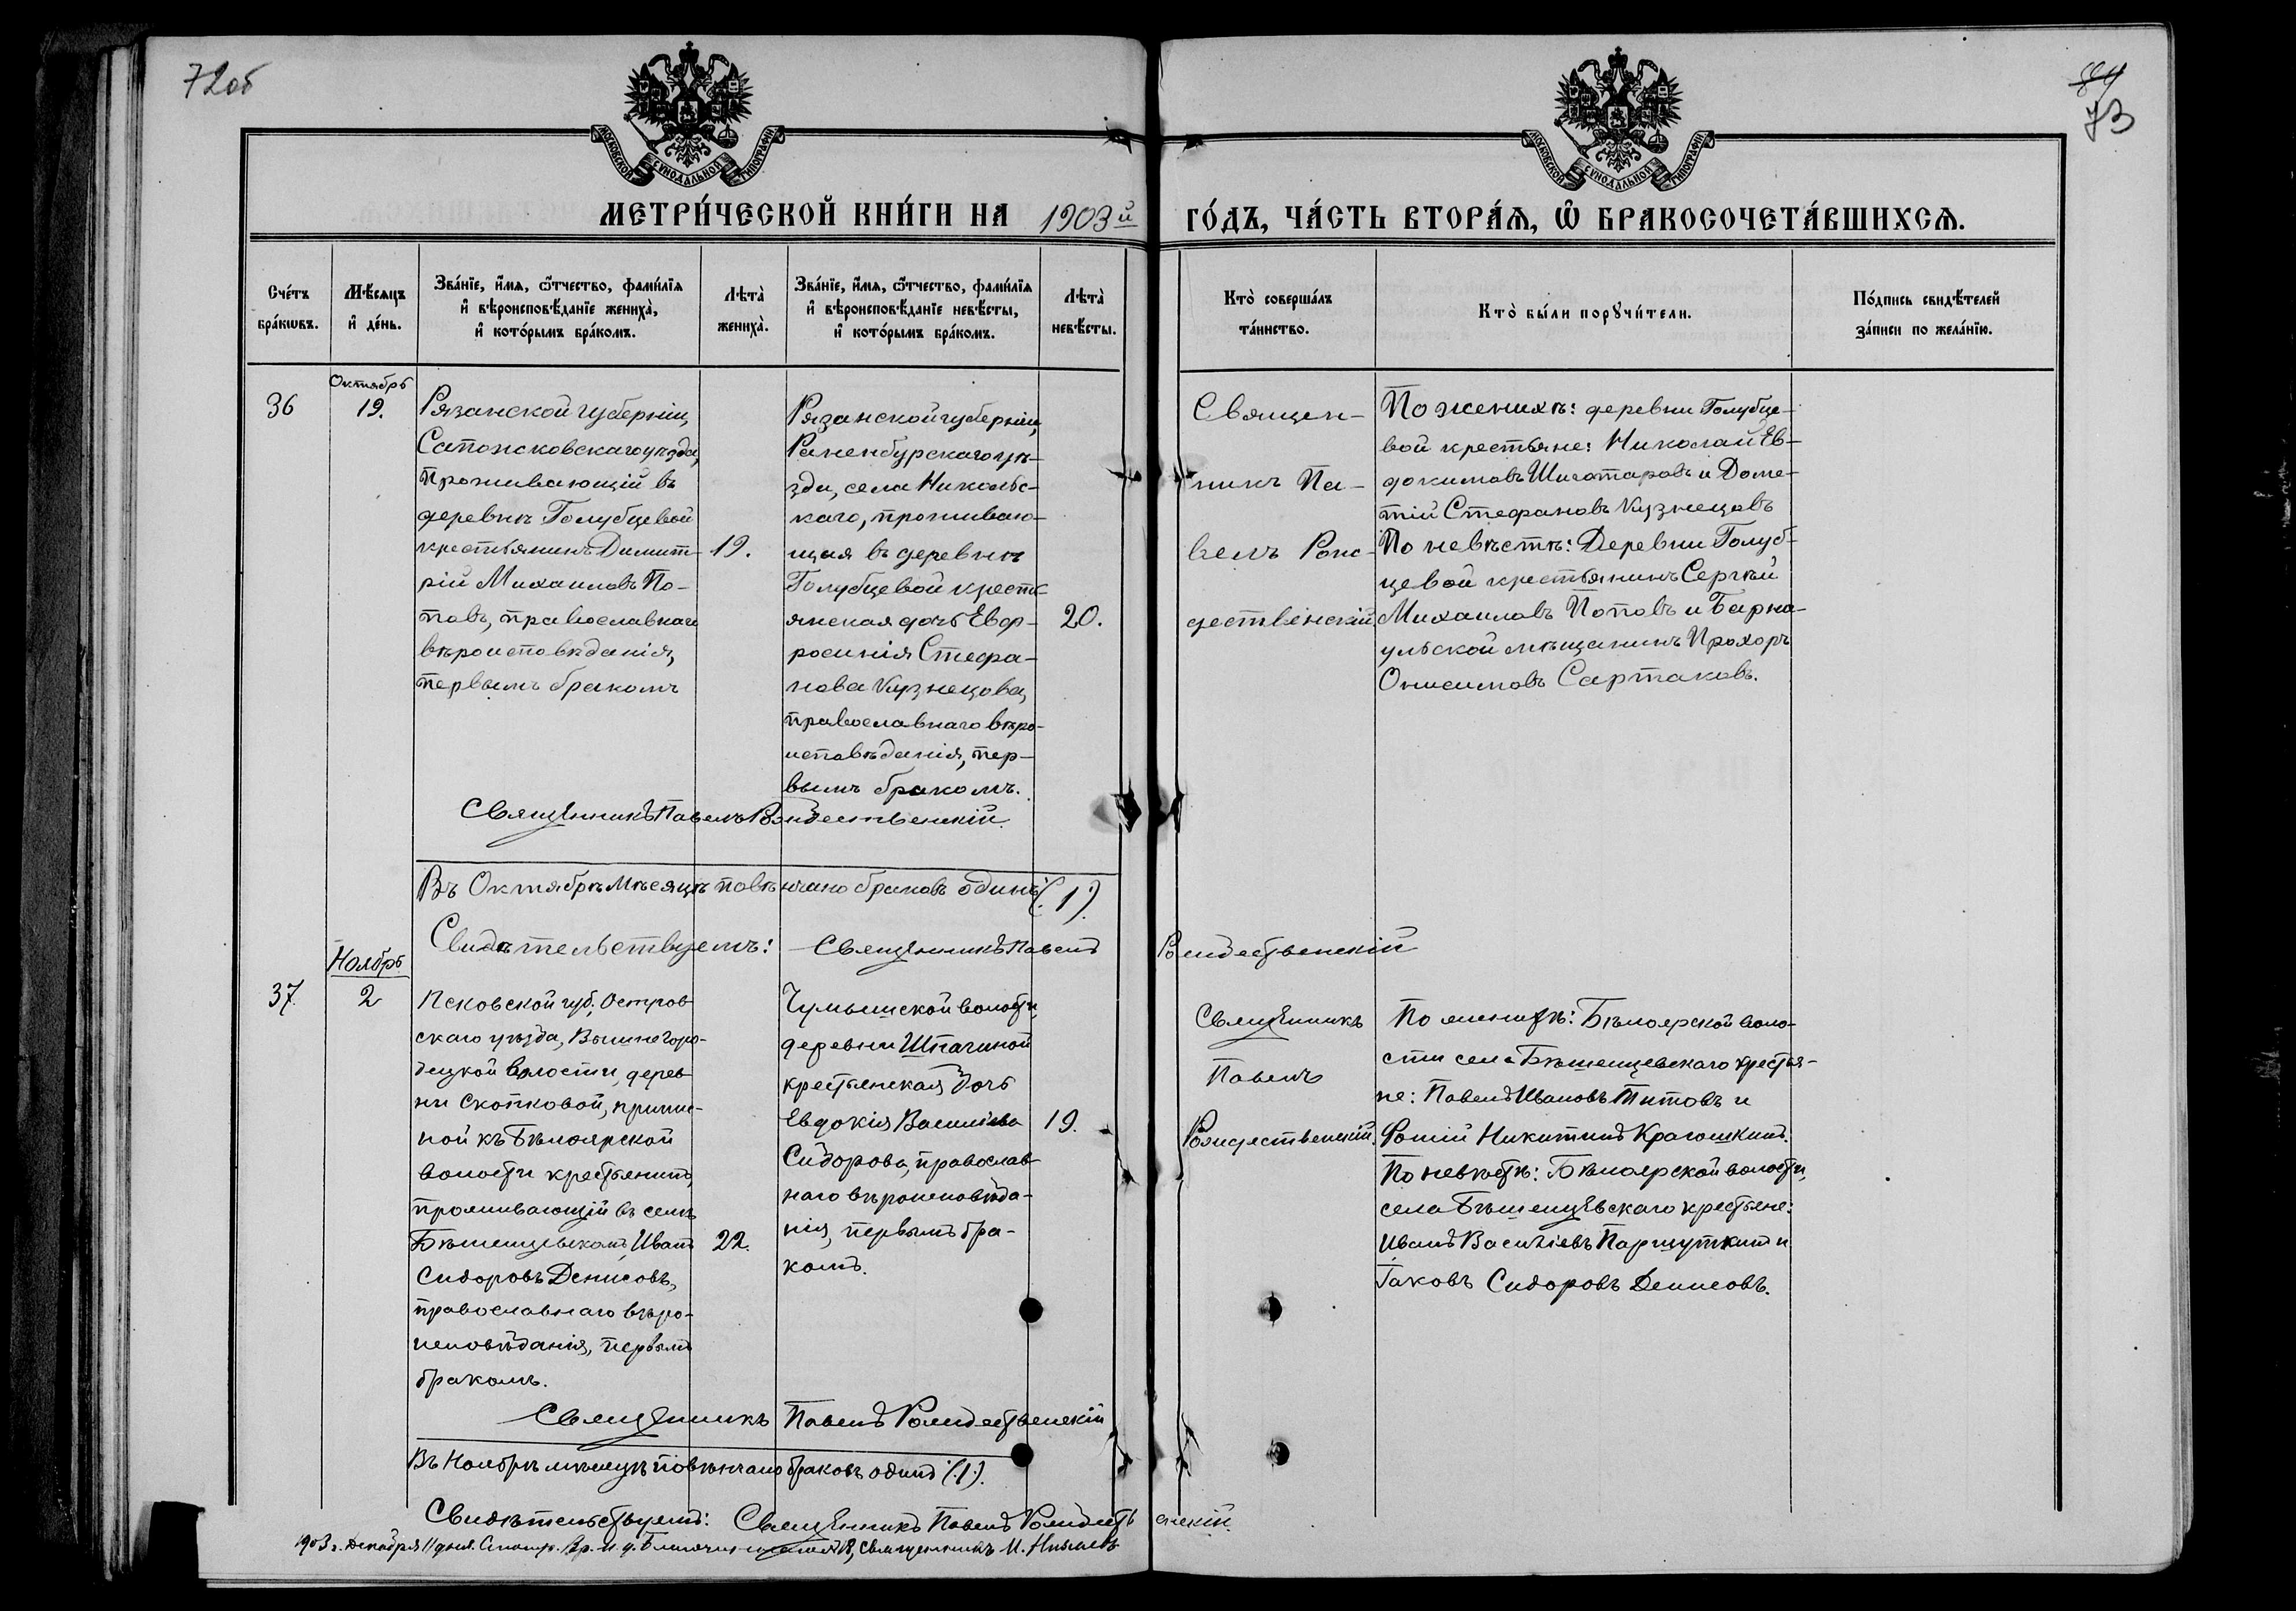 72об
84
73
МОСКОВСКОЙ СѴНОДАЛЬНОЙ ТИПОГРАФІИ
МОСКОВСКОЙ СѴНОДАЛЬНОЙ ТИПОГРАФІИ
МЕТРИ́ЧЕСКОЙ КНИ́ГИ НА 1903й ГО́ДЪ, ЧА́СТЬ ВТОРА́Ѧ, Ѽ БРАКОСОЧЕТА́ВШИХСѦ.
Сче́тъ
бра́кѡвъ.
Мѣ́сѧцъ
и҆ де́нь.
Зва́нїе, и҆́мѧ, ѻ҆́тчество, фами́лїѧ
и҆ вѣроисповѣ́данїе жениха̀,
и҆ кото́рымъ бра́комъ.
Лѣта̀
жениха̀.
Зва́нїе, и҆́мѧ, ѻ҆́тчество, фами́лїѧ
и҆ вѣроисповѣ́данїе невѣ́сты,
и҆ кото́рымъ бра́комъ.
Лѣта̀
невѣ́сты.
Кто̀ соверша́лъ
та́инство.
Кто̀ бы́ли порꙋчи́тели.
По́дпись свидѣ́телей
за́писи по жела́нїю.
36
Октябрь
19.
Рязанской губерніи,
Сапожсковскаго уѣзда,
проживающій въ
деревнѣ Голубцевой
крестьянинъ Димит-
рій Михаиловъ По-
повъ, православнаго
вѣроисповѣданія,
первымъ бракомъ
19.
Рязанской губерніи,
Раненбургскаго уѣ-
зда, села Никольс-
каго, проживаю-
щая въ деревнѣ
Голубцевой кресть-
янская дочь Евф-
росинія Стефа-
нова Кузнецова,
православнаго вѣро-
исповѣданія, пер-
вымъ бракомъ.
20.
Священ-
никъ Па-
велъ Рож-
дественскій
По женихѣ: деревни Голубце-
вой крестьяне: Николай Ев-
докимовъ Шигатаровъ и Доме-
тій Стефановъ Кузнецовъ
По невѣстѣ: Деревни Голуб-
цевой крестьянинъ Сергѣй
Михаиловъ Поповъ и Барна-
ульской мѣщанинъ Прохоръ
Онисимовъ Сартаковъ.
Священникъ Павелъ Рождественскій.
Въ Октябрѣ мѣсяцѣ повѣнчано браковъ одинъ (1).
Свидѣтельствуемъ: Священникъ Павелъ Рождественскій
Ноябрь
37.
2
Псковской губ., Остров
скаго уѣзда, Вышнегоро-
децкой волости, дерев
ни Скопковой, припис-
ной къ Бѣлоярской
волости крестьянинъ,
проживающій въ селѣ
Бѣшенцевскомъ, Иванъ
Сидоровъ Денисовъ,
православнаго вѣро-
исповѣданія, первымъ
бракомъ.
22.
Чумышской волости,
деревни Шпагиной
крестьянская дочь
Евдокія Василіева
Сидорова, православ
наго вѣроисповѣда-
нія, первымъ бра-
комъ.
19.
Священникъ
Павелъ
Рождественскій.
По женихѣ: Бѣлоярской воло-
сти села Бѣшенцевскаго крестья-
не: Павелъ Ивановъ Титовъ и
Фотій Никитинъ Крагошкинъ.
По невѣстѣ: Бѣлоярской волости,
села Бѣшенцевскаго крестьяне:
Иванъ Василіевъ Паршуткинъ и
Іаковъ Сидоровъ Денисовъ.
Священникъ Павелъ Рождественскій
Въ Ноябрѣ мѣсяцѣ повѣнчано браковъ одинъ (1).
Свидѣтельствуемъ: Священникъ Павелъ Рождественскій.
1903 г. Декабря 11 дня. Смотр. Вр. И. д. Благочиннаго № 18, священникъ М.